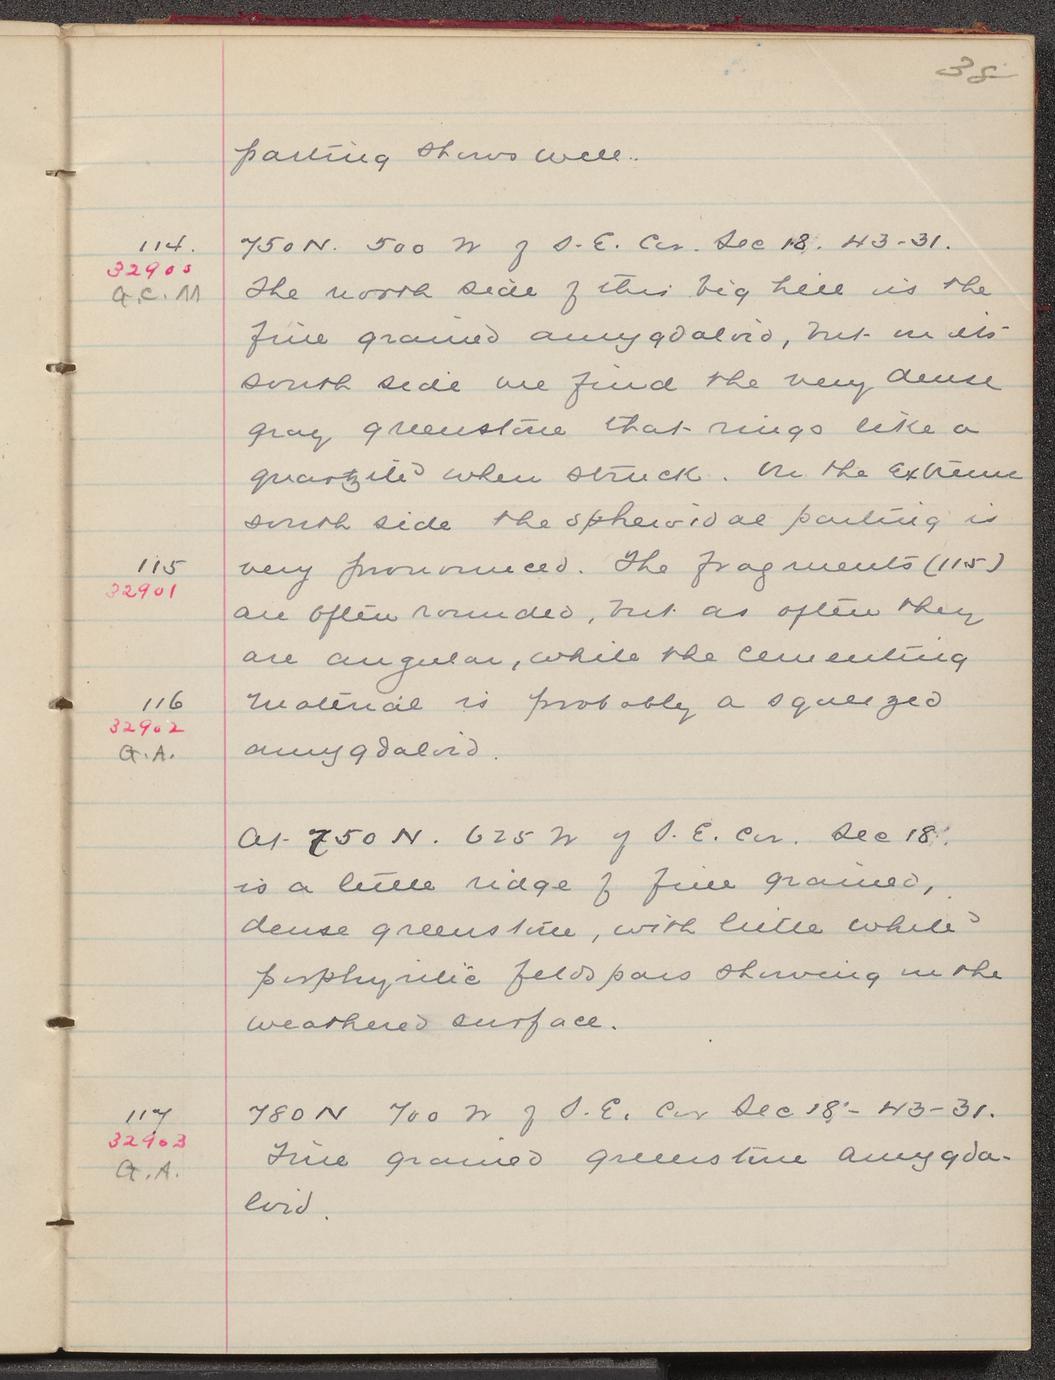 38
parting shows well.
114. 750 N. 500 W of S. E. Cor. Sec 18. 43-31.
32900
G.C.M The north side of this big hill is the
fine grained amygdaloid, but on its
south side we find the very dense
gray greenstone that rings like a
quartzite when struck. On the extreme
south side the spheroidal parting is
115 very pronounced. The fragments (115)
32901
are often rounded, but as often they
are angular, while the cementing
116 material is probably a squeezed
32902
G.A. amygdaloid.
At 750 N. 625 W of S. E. Cor. Sec 18.
is a little ridge of fine grained,
dense greenstone, with little white
porphyritic feldspars showing on the
weathered surface.
117 780 N 700 W of S. E. Cor Sec 18 - 43-31.
32903
G.A. Fine grained greenstone amygda-
loid.